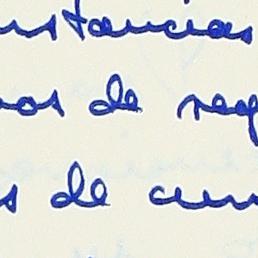 ustancias
nos de reg
s de cum